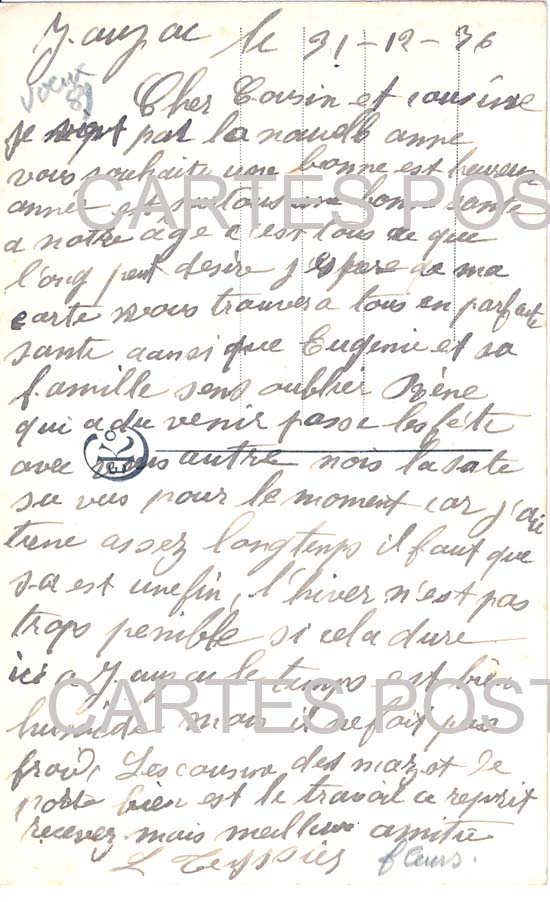 Jauzac le 31-12-36
voeux
Cher Cousin et cousine
je par la nouvelle anne
vous souhaite une bonne est heureu
CARTES POST
anné et surtous une bone sante
a notre âge c'est tous ce que
l'ong peut desire j'éspere qe ma
carte vous trouvera tous en parfaite
sante aunsi que Eugenie et sa
famille sens oublier
qui a du venir passe les féte
avec vous autre mois la sate
su vus pour le moment car j'ai
trene assez longtemps il faut que
sa est une fin, l'hiver n'est pas
trops penible si cela dure
ici a Jauzac le temps est bien
CARTES POST
humide mais il ne fait pas
froid, Les cousin de et Je
porte bien est le travail a reprit
recevez mais meilleur amitie
L Teyssier
fleurs.